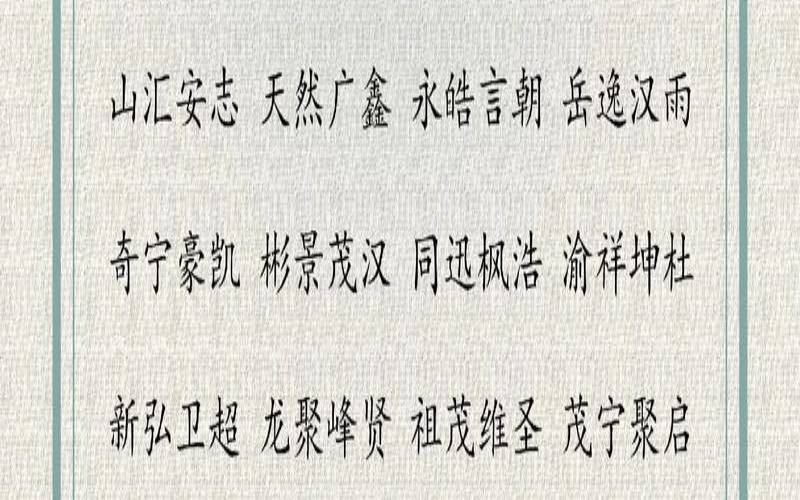 山汇安志 天然广鑫 永皓言朝 岳逸汉雨
奇宁豪凯 彬景茂汉 同迅枫浩 渝祥坤杜
新弘卫超 龙聚峰贤 祖茂维圣 茂宁聚启